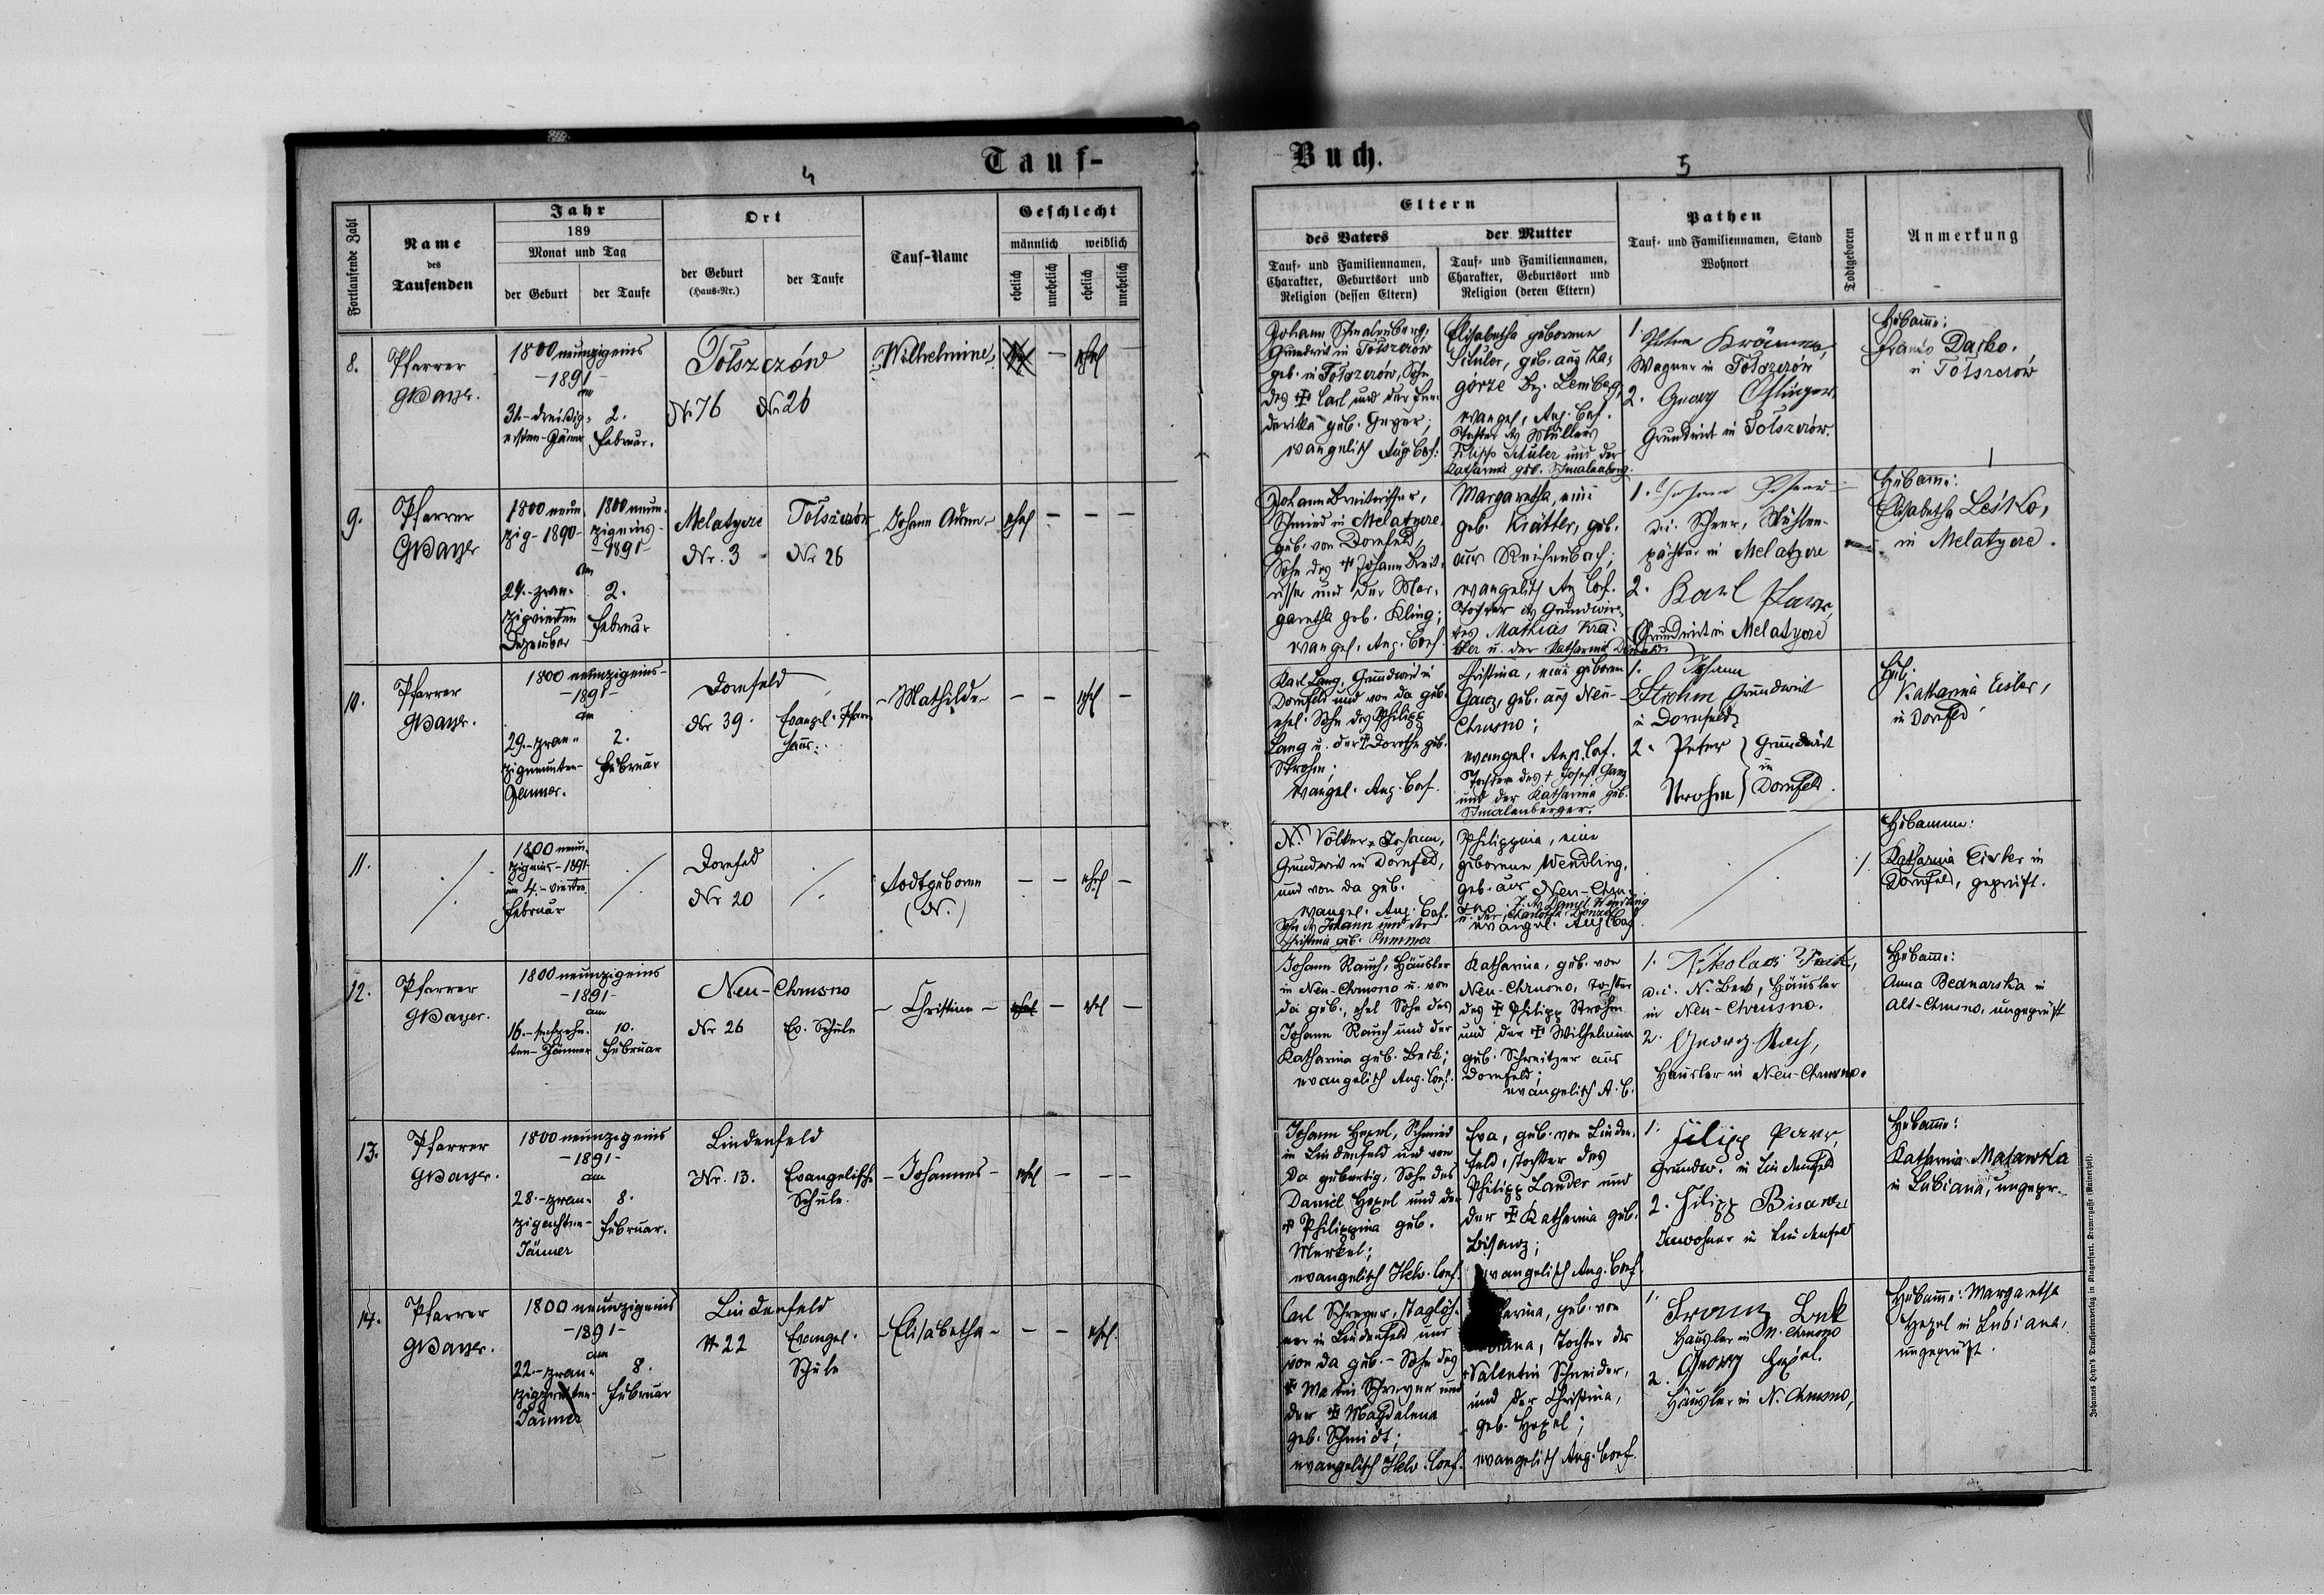 Tauf-
4
Fortlaufende Zahl
Name
des
Taufenden
Jahr
189
Monat und Tag
der Geburt
der Taufe
Ort
der Geburt
(Haus-Nr.)
der Taufe
Tauf-Name
Geschlecht
männlich
weiblich
ehelich
unehelich
ehelich
unehelich
8.
Pfarrer
GBayer.
1800 neunzigeins
-1891-
am
31.-dreißig-
ersten-Jänner
2.
Februar.
Tołszczów
Nr 76
Nr 26
Wilhelmine
ehel
9.
Pfarrer
GBayer
1800 neun-
zig-1890-
1800 neun-
zigeins-
-1891-
am
24.-zwan-
zigvierten
Dezember
2.
Februar
Melatycze
Nr. 3
Tołszczów
Nr 26
Johann Adam
ehel
10.
Pfarrer
GBayer.
1800 neunzigeins-
-1891-
am
29.-zwan-
zigneunten-
Jänner.
2.
Februar
Dornfeld
Nr 39.
Evangel. Pfarr-
haus.
-Mathilde-
ehel
11.
1800 neun-
zigeins-1891-
am 4.-vierten
Februar
Dornfeld
Nr 20
todtgeboren
(N.)
ehel
12.
Pfarrer
GBayer.
1800 neunzigeins
-1891-
am
16.-sechzehn-
ten-Jänner
10.
Februar
Neu-Chrusno
Nr 26
Ev. Schule
-Christine-
ehel
13.
Pfarrer
GBayer.
1800 neunzigeins
-1891-
am
28.-zwan-
zigachten-
Jänner
8.
Februar.
Lindenfeld
Nr. 13.
Evangelische
Schule.
-Johannes-
ehel
14.
Pfarrer
GBayer.
1800 neunzigeins
-1891-
am
22.-zwan-
zigzweiten-
Jänner
8.
Februar
Lindenfeld
22
Evangel.
Schule
-Elisabetha-
ehel
Buch.
5
Eltern
des Vaters
der Mutter
Tauf- und Familiennamen,
Charakter, Geburtsort und
Religion (dessen Eltern)
Tauf- und Familiennamen,
Charakter, Geburtsort und
Religion (deren Eltern)
Pathen
Tauf- und Familiennamen, Stand
Wohnort
Todtgeboren
Anmerkung
Johann Schmalenberg,
Grundwirt in Tołszczów
geb. in Tołszczów, Sohn
des ✠ Carl und der Frie-
derika geb. Geyer;
evangelisch Aug. Conf.
Elisabetha geborene
Schuler, geb. aus Za-
górze Bez. Lemberg,
evangel. Aug. Conf.
Tochter des Müllers
Filipp Schuler und der
Katharina geb. Schmalenberg.
1.
Krämer,
Wagner in Tołszczów
2. Georg
Grundwirt in Tołszczów.
Hebamme:
Franio Darko.
in Tołszczów
Johann Breitwisser,
Schmied in Melatycze,
geb. von Dornfeld,
Sohn des ✠ Johann Breit-
wisser und der Mar-
garetha geb. Kling;
evangel. Aug. Conf.
Margaretha, eine
geb. Krätter, geb.
aus Reichenbach;
evangelisch Aug. Conf.
Tochter des Grundwir-
tes Mathias Krä-
tter u. der Katharina
1. Johann
d.i. Scherr, Mühlen-
pächter in Melatycze
2. Karl
Grundwirt in Melatycze
Hebamme:
Elisabetha Leśko,
in Melatycze.
Karl Lang, Grundwirt in
Dornfeld und von da geb.
ehel. Sohn des Philipp
Lang u. der ✠ Dorothe geb.
Strohm;
evangel. Aug. Conf.
Christina, eine geborene
Ganz, geb. aus Neu-
Chrusno;
evangel. Aug. Conf.
Tochter des † Josef Ganz
und der Katharina geb.
Schmalenberger.
1. Johann
Strohm Grundwirt
in Dornfeld
2. Peter
Strohm
Grundwirt
in
Dornfeld.
Heb.
Katharina Eisler,
in Dornfeld
N. Völker Johann,
Grundwirt in Dornfeld,
und von da geb.
evangel. Aug. Conf.
Sohn des Johann und der
Christina geb. Pummer
Philippina, eine
geborene Wendling,
geb. aus Neu-Chru-
sno. T. des Daniel Wendling
u. der Charlotte
evangel. Aug. Conf.
Hebamme:
Katharina Eisler in
Dornfeld, geprüft.
Johann Rauch, Häusler
in Neu-Chrusno u. von
da geb., ehel Sohn des
Johann Rauch und der
Katharina geb. Beck;
evangelisch Aug. Conf.
Katharina, geb. von
Neu-Chrusno, Tochter
des ✠ Philipp Strohm
und der ✠ Wilhelmina
geb. Schweitzer aus
Dornfeld;
evangelisch A.C.
1. Nikolaus
d.i. N. Beck, Häusler
in Neu-Chrusno.
2. Georg
Häusler in Neu-Chrusno.
Hebamme:
Anna Bednarska in
Alt-Chrusno, ungeprüft
Johann Hexel, Schmied
in Lindenfeld und von
da gebürtig, Sohn des
Daniel Hexel und der
✠ Philippina geb.
Merkel;
evangelisch Helv. Conf.
Eva, geb. von Linden-
feld, Tochter des
Philipp Lander und
der ✠ Katharina geb.
Bisanz;
evangelisch Aug. Conf.
1. Filipp Parr,
Grundw. in Lindenfeld
2. Filipp Bisanz
Inwohner in Lindenfeld
Hebamme:
Katharina Matawka
in Lubiana, ungepr.
Carl Schreyer, Taglöh-
ner in Lindenfeld und
von da geb. - Sohn des
✠ Martin Schreyer und
der ✠ Magdalena
geb. Schmidt;
evangelisch Helv. Conf.
arina, geb. von
iana, Tochter des
Valentin Schneider,
und der Christina,
geb. Hexel;
evangelisch Aug. Conf.
1. Franz
Häusler in N. Chrusno
2. Georg Hexel.
Häusler in N. Chrusno,
Hebamme: Margaretha
Hexel in Lubiana,
ungeprüft.
Johannes Heyn's Drucksortenverlag in Klagenfurt. Kramergasse (Rainerhof).